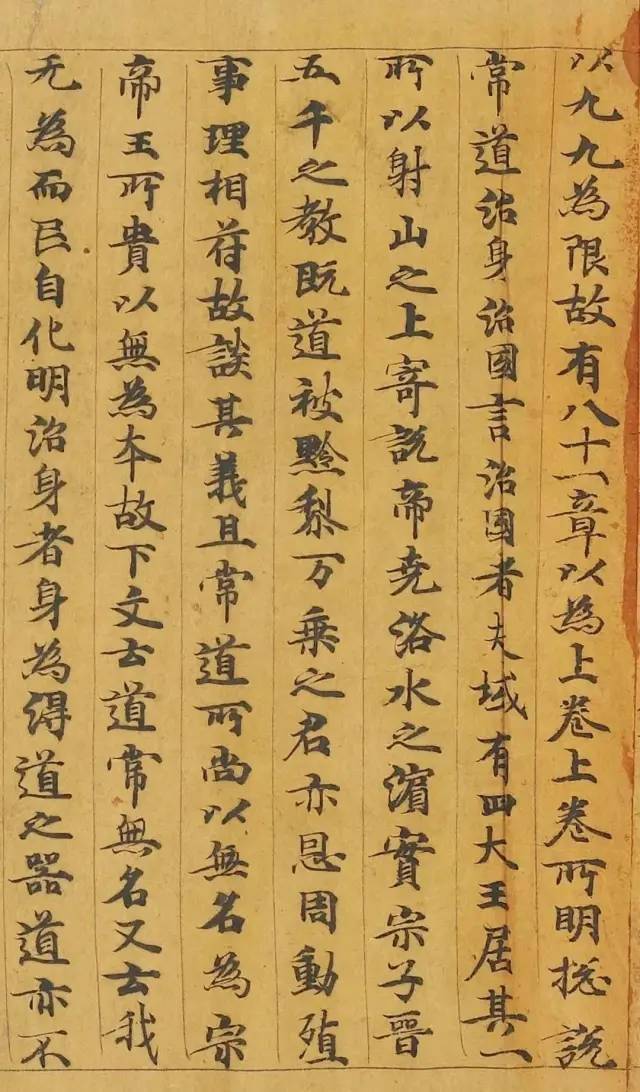 以九九為限故有八十一章以為上卷上卷所明捴說
常道治身治國言治國者夫域有四大王居其一
所以射山之上寄說帝尭洛水之濵實宗子晋
五千之教既道被黔梨万乗之君亦恩周動殖
事理相苻故談其義且常道所尚以無名為宗
帝王所貴以無為為本故下文云道常無名又云我
无為而民自化明治身者身為得道之器道亦不